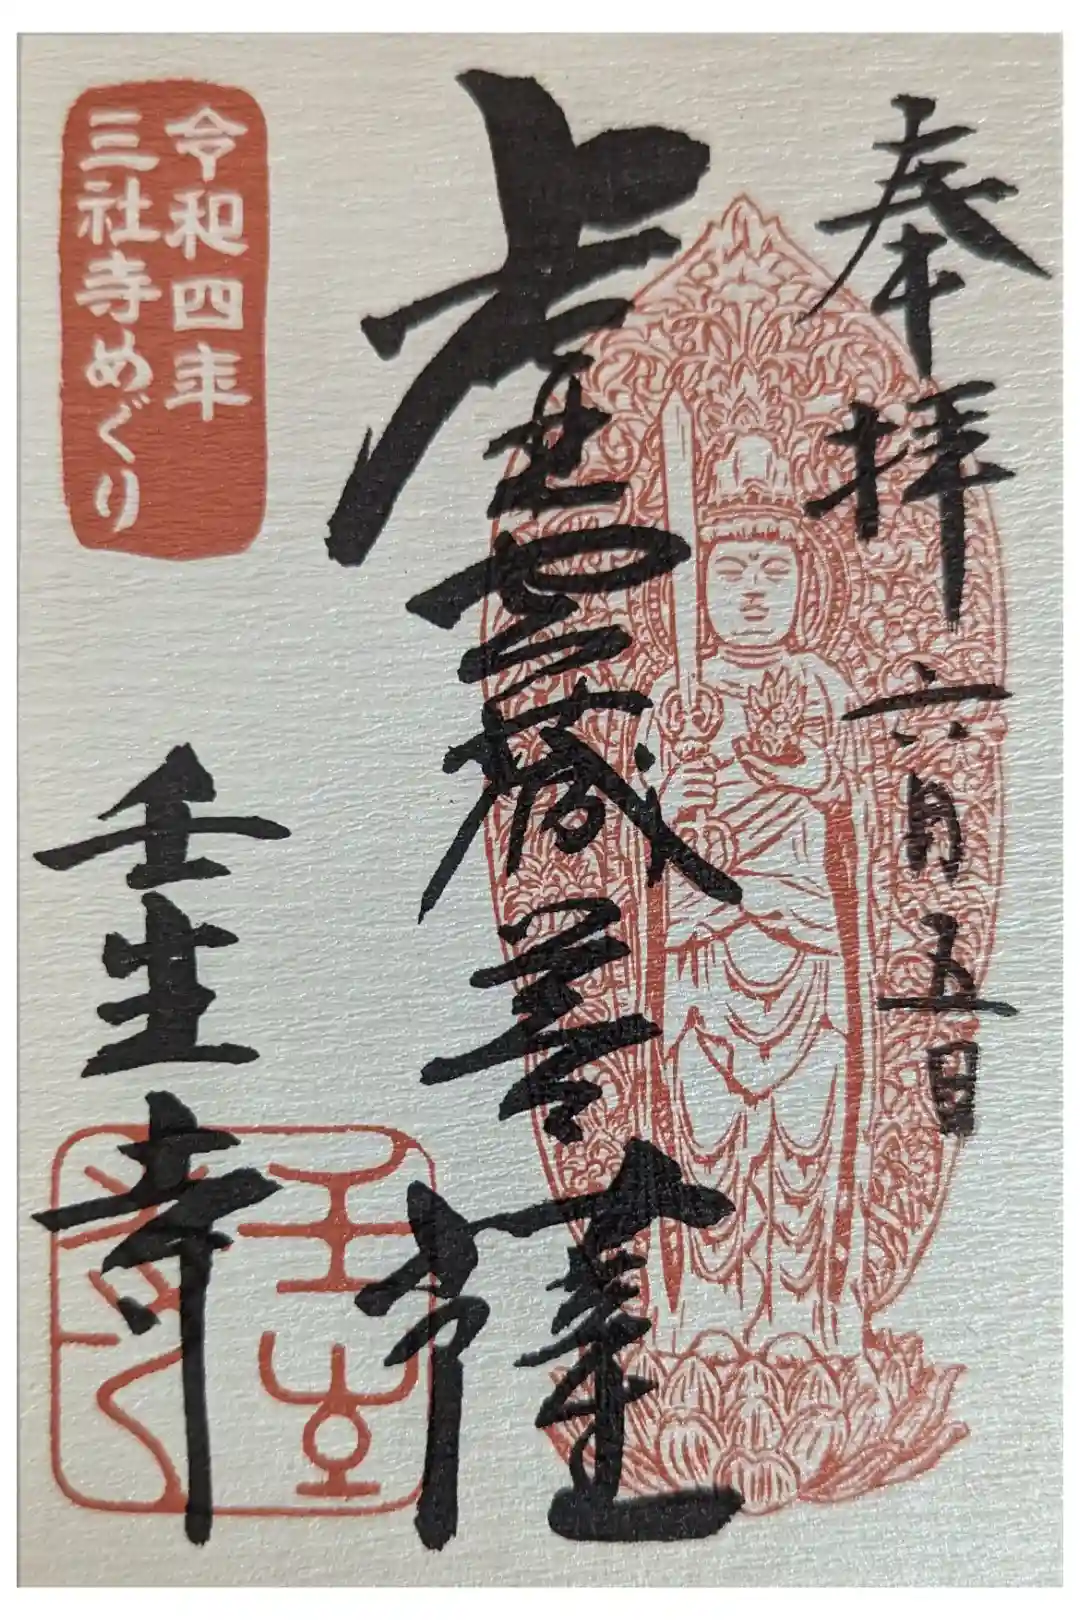 奉拝
六月五日
虚空蔵菩薩
令和四年
三社寺めぐり
壬生寺
壬生
寺印